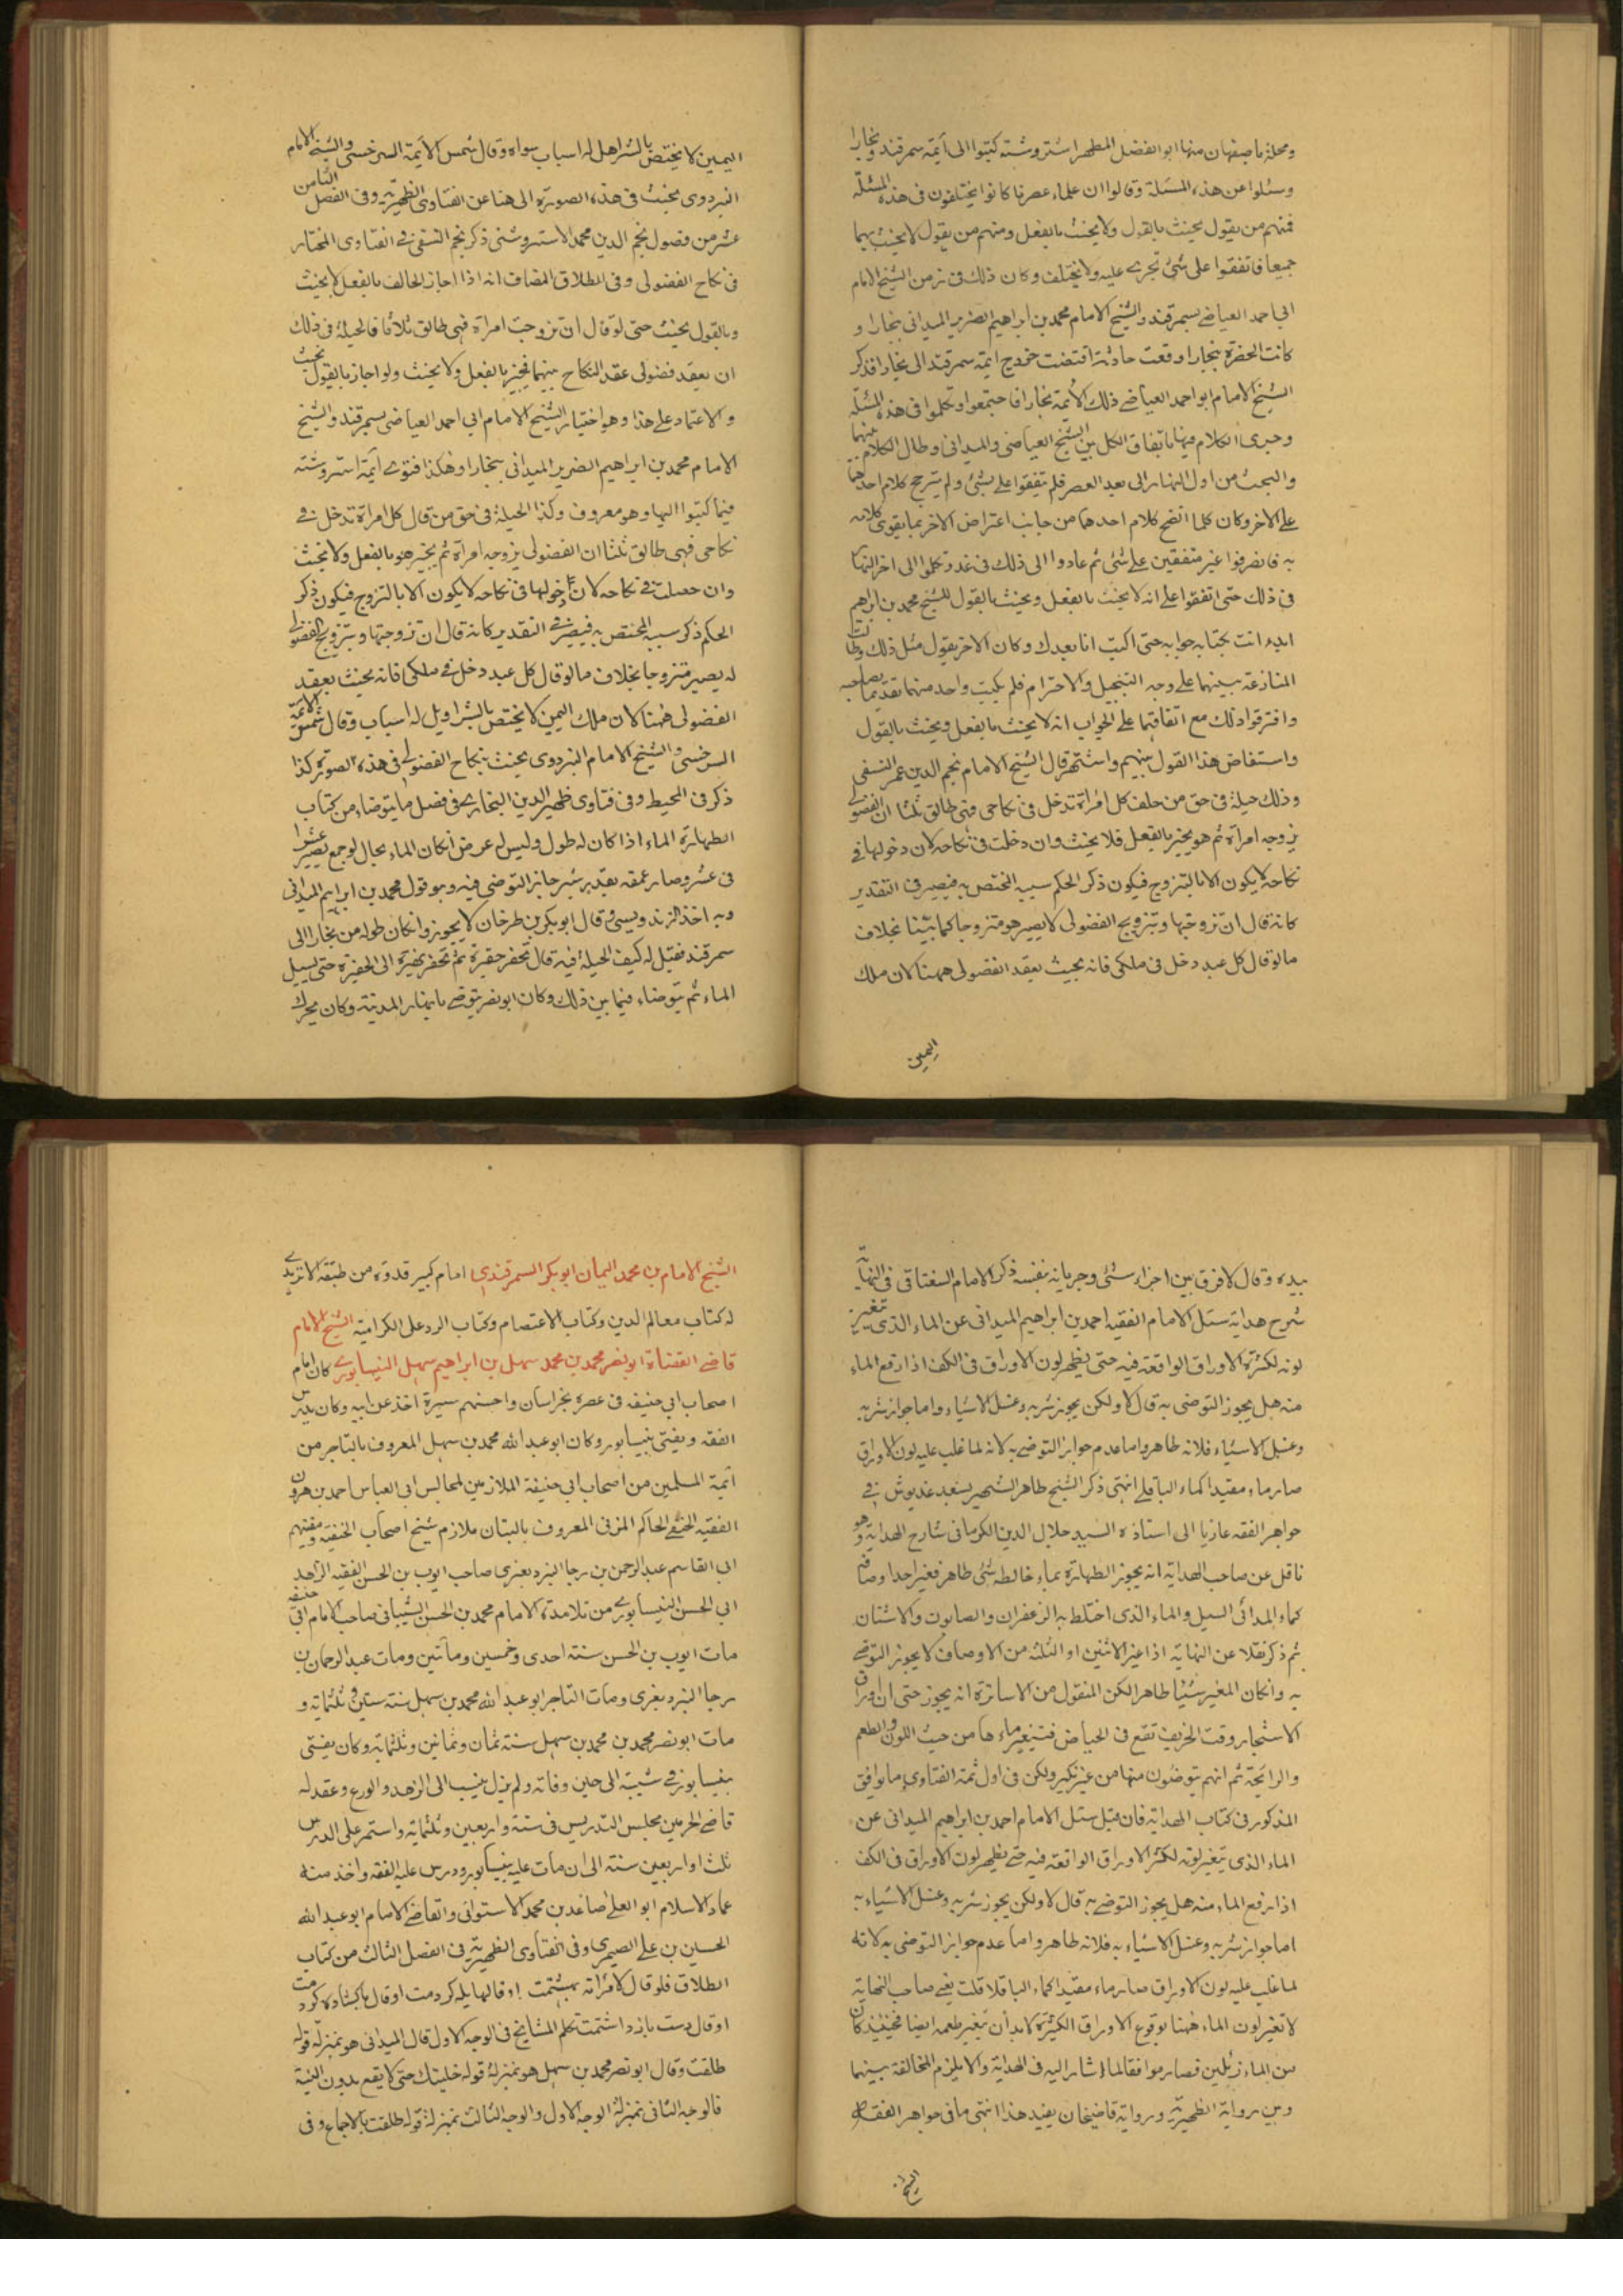 ومحلة باصبهان منها ابو الفضل المطهر استروشنه كتبوا الى ائمة سمرقند وبخارا
وسئلوا عن هذه المسئلة وقالوا ان علماء عصرنا كانوا يختلفون فى هذه المسئلة
فمنهم من يقول يحنث بالقول ولا يحنث بالفعل ومنهم من يقول لا يحنث بهما
جميعا فاتفقوا على شئ نجرى عليه ولا نختلف وكان ذلك فى زمن الشيخ الامام
ابى احمد العياضى بسمرقند والشيخ الامام محمد بن ابراهيم الضرير الميدانى ببخارا و
كانت الحضرة ببخارا وقعت حادثة اقتضت خروج ائمة سمرقند الى بخارا فذكر
الشيخ الامام ابو احمد العياضى ذلك لائمة بخارا فاجتمعوا وتكلموا فى هذه المسئلة
وجرى الكلام فيها باتفاق الكل بين الشيخ العياضى والميدانى وطال الكلام بينهما
والبحث من اول النهار الى بعد العصر فلم يتفقوا على شئ ولم يترجح كلام احدهما
على الاخر وكان كلما اتضح كلام احدهما من جانب اعتراض الاخر بما يقوى كلامه
به فانصرفوا غير متفقين على شئ ثم عادوا الى ذلك فى غد وتكلموا الى اخر النهار
فى ذلك حتى اتفقوا على انه لا يحنث بالفعل ويحنث بالقول للشيخ محمد بن ابراهيم
ابدء انت بكتابه جوابه حتى اكتب انا بعدك وكان الاخر يقول مثل ذلك وطالت
المنازعة بينهما على وجه التبجيل والاحترام فلم يكتب واحد منهما تقديما لصاحبه
وافترقوا ذلك مع اتفاقهما على الجواب انه لا يحنث بالفعل ويحنث بالقول
واستفاض هذا القول بينهم واشتهر قال الشيخ الامام نجم الدين عمر النسفى
وذلك حيلة فى حق من حلف كل امرأة تدخل فى نكاحى فهى طالق ثلثا ان الفضولى
يزوجه امرأة ثم هو يجيز بالفعل فلا يحنث وان دخلت فى نكاحه لان دخولها فى
نكاحه لا يكون الا بالتزوج فيكون ذكر الحكم سببه المختص به فيصير فى التقدير
كانه قال ان تزوجتها وبتزويج الفضولى لا يصير هو متزوجا كما بينا بخلاف
ما لو قال كل عبد دخل فى ملكى فانه يحنث بعقد الفضولى ههنا لان ملك
اليمين
اليمين لا يختص بالشرا هل له اسباب سواه وقال شمس الائمة السرخسى والشيخ الامام
البزدوى يحنث فى هذه الصورة الى هنا عن الفتاوى الظهيرية وفى الفصل الثامن
عشر من فصول نجم الدين محمد الاستروشنى ذكر نجم النسفى فى الفتاوى المختار
فى نكاح الفضولى وفى الطلاق المضاف انه اذا اجاز الحالف بالفعل لا يحنث
وبالقول يحنث حتى لو قال ان تزوجت امرأة فهى طالق ثلاثا فالحيلة فى ذلك
ان يعقد فضولى عقد النكاح بينهما فيجيز بالفعل ولا يحنث ولو اجاز بالقول يحنث
والاعتماد على هذا وهو اختيار الشيخ الامام ابى احمد العياضى بسمرقند والشيخ
الامام محمد بن ابراهيم الضرير الميدانى ببخارا وهكذا فتوى ائمة استروشنه
فيما كتبوا اليها وهو معروف وكذا الحيلة فى حق من قال كل امرأة تدخل فى
نكاحى فهى طالق ثلثا ان الفضولى يزوجه امرأة ثم يجيز هو بالفعل ولا يحنث
وان حصلت فى نكاحه لان دخولها فى نكاحه لا يكون الا بالتزوج فيكون ذكر
الحكم ذكر سببه المختص به فيصير فى التقدير كانه قال ان تزوجتها وبتزويج الفضولى
له يصير متزوجا بخلاف ما لو قال كل عبد دخل فى ملكى فانه يحنث بعقد
الفضولى ههنا لان ملك اليمين لا يختص بالشرا ويل له اسباب وقال شمس الائمة
السرخسى والشيخ الامام البزدوى يحنث بنكاح الفضولى فى هذه الصورة كذا
ذكر فى المحيط وفى فتاوى ظهير الدين البخارى فى فصل ما يتوضاء من كتاب
الطهارة الماء اذا كان له طول وليس له عرض ان كان الماء بحال لو جمع يصير عشرا
فى عشر وصار عمقه بقدر شبر جاز التوضى فيه وهو قول محمد بن ابراهيم الميدانى
وبه اخذ الزندويستى وقال ابو بكر بن طرخان لا يجوز وان كان طوله من بخارا الى
سمرقند فقيل له كيف الحيلة فيه قال تحفر حفيرة ثم تحفر نهيرة الى الحفيرة حتى يسيل
الماء ثم يتوضاء فيما بين ذلك وكان ابو نصر يتوضى بانهار المدينة وكان يحرك
بيده وقال لا فرق بين اجراء شئ وجريانه بنفسه ذكر الامام السغناقى فى النهاية
شرح هداية سئل الامام الفقيه احمد بن ابراهيم الميدانى عن الماء الذى تغير
لونه لكثرة الاوراق الواقعة فيه حتى يظهر لون الاوراق فى الكف اذا رفع الماء
منه هل يجوز التوضى به قال لا ولكن يجوز شربه وغسل الاشياء واما جواز شربه
وغسل الاشياء فلانه طاهر واما عدم جواز التوضى به لانه لما غلب عليه لون الاوراق
صار ماء مقيدا كماء الباقلى انتهى ذكر الشيخ طاهر الشهير بسعد غديوش فى
جواهر الفقه عازيا الى استاذه السيد جلال الدين الكرمانى شارح الهداية وهو
ناقل عن صاحب الهداية انه يجوز الطهارة بماء خالطه شئ طاهر فغير احد اوصافه
كماء المدائى السيل والماء الذى اختلط به الزعفران والصابون والاشنان
ثم ذكر نقلا عن النهاية اذا غير الاثنين او الثلثة من الاوصاف لا يجوز التوضى
به وان كان المغير شيئا طاهرا لكن المنقول من الاساتذة انه يجوز حتى ان اوراق
الاشجار وقت الخريف تقع فى الحياض فتتغير ماءها من حيث اللون والطعم
والرائحة ثم انهم يتوضون منها من غير نكير ولكن فى اول تتمة الفتاوى ما يوافق
المذكور فى كتاب الهداية فان قيل سئل الامام احمد بن ابراهيم الميدانى عن
الماء الذى يتغير لونه لكثر الاوراق الواقعة فيه حتى يظهر لون الاوراق فى الكف
اذا رفع الماء منه هل يجوز التوضى به قال لا ولكن يجوز شربه وغسل الاشياء به
اما جواز شربه وغسل الاشياء به فلانه طاهر واما عدم جواز التوضى به لانه
لما غلب عليه لون الاوراق صار ماء مقيدا كماء الباقلا قلت يعنى صاحب النهاية
لا تغير لون الماء ههنا بوقوع الاوراق الكثيرة لا بد أن تغير طعمه ايضا فحينئذ كان
من الماء زئلين فصار موافقا لما اشار اليه فى الهداية والا يلزم المخالفة بينهما
وبين رواية الظهيرية ورواية قاضيخان يفيد هذا انتهى ما فى جواهر الفقه
الشيخ
الشيخ الامام بن محمد اليمان ابو بكر السمرقندى امام كبير قدوة من طبقة الماتريدى
له كتاب معالم الدين وكتاب الاعتصام وكتاب الرد على الكرامية الشيخ الامام
قاضى القضاة ابو نصر محمد بن محمد سهل بن ابراهيم سهل النيسابورى كان امام
اصحاب ابى حنيفه فى عصره بخراسان واحسنهم سيرة اخذ عن ابيه وكان يدرس
الفقه ويفتى بنيسابور وكان ابو عبد الله محمد بن سهل المعروف بالتاجر من
ائمة المسلمين من اصحاب ابى حنيفة الملازمين لمجالس ابى العباس احمد بن هرون
الفقيه الحنفى الحاكم المزنى المعروف بالبتان ملازم شيخ اصحاب الحنفية ومفتيهم
ابى القاسم عبد الرحمن بن رجا البزديغرى صاحب ايوب بن الحسن الفقيه الزاهد
ابى الحسن النيسابورى من تلامذة الامام محمد بن الحسن الشيبانى صاحب الامام ابى حنيفه
مات ايوب بن الحسن سنة احدى وخمسين ومأتين ومات عبد الرحمان بن
رجا البزديغرى ومات التاجر ابو عبد الله محمد بن سهل سنة ستين وثلثماية و
مات ابو نصر محمد بن محمد بن سهل سنة ثمان وثمانين وثلثماية وكان يفتى
بنيسابور فى شيبته الى حين وفاته ولم يزل ينسب الى الزهد والورع وعقد له
قاضى الحرمين مجلس التدريس فى سنة واربعين وثلثماية واستمر على الدرس
ثلث او اربعين سنة الى ان مات عليه بنيسابور ودرس عليه الفقه واخذ منه
عماد الاسلام ابو العلى صاعد بن محمد الاستوائى والقاضى الامام ابو عبد الله
الحسين بن على الصيمرى وفى الفتاوى الظهيرية فى الفصل الثالث من كتاب
الطلاق فلو قال لامرأته بهشتمت او قال لها يله كردمت او قال پاكشاده كردمت
او قال دست بازداشتمت تكلم المشايخ فى الوجه الاول قال الميدانى هو بمنزلة قوله
طلقت وقال ابو نصر محمد بن سهل هو بمنزلة قوله خليتك حتى لا يقع بدون النية
فالوجه الثانى بمنزلة الوجه الاول والوجه الثالث بمنزلة قوله طلقت بالاجماع وفى